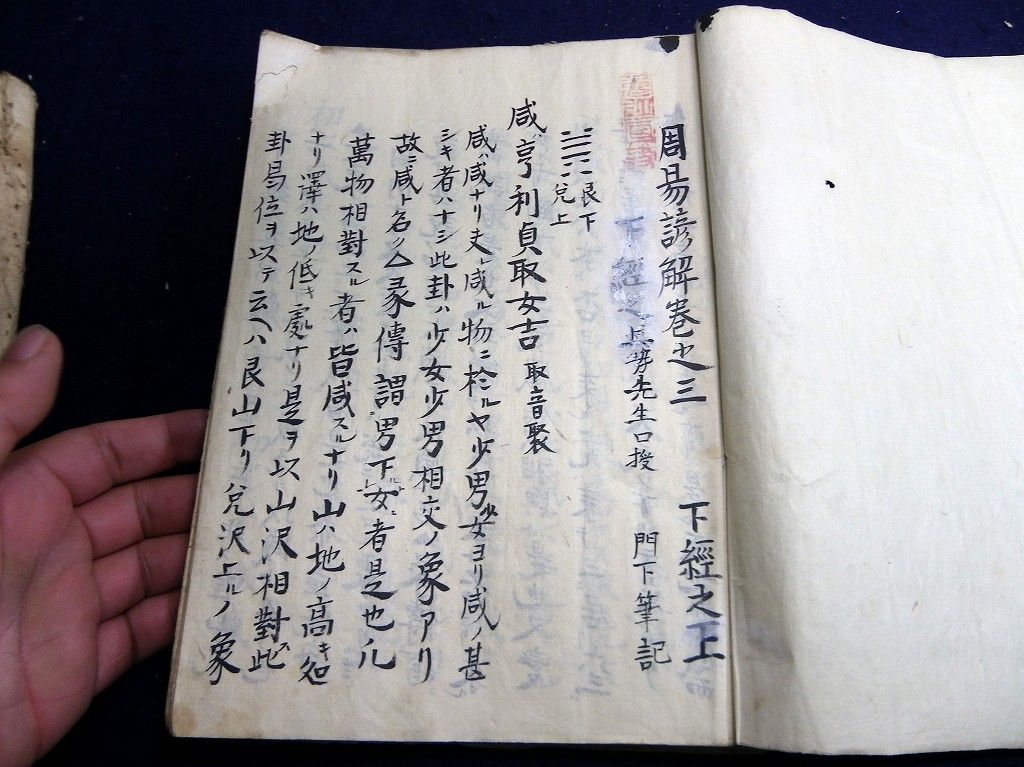 周易諺解巻之三　下經之上
先生口授　門下筆記
艮下
兌上
咸ハ亨利貞取女吉 取音娶
咸ハ咸ナリ夫レ咸ル物ニ於ルヤ少男少女ヨリ咸ノ甚
シキ者ハナシ此卦ハ少女少男相交ノ象アリ
故ニ咸ト名ク△彖傳謂男下女者是也凡
萬物相對スル者ハ皆咸スルナリ山ハ地ノ高キ名
ナリ澤ハ地ノ低キ處ナリ是ヲ以山沢相對ス此
卦易位ヲ以テ云ヘハ艮山下リ兌沢上ルノ象